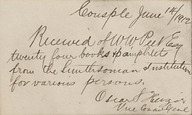 Consple June 14/1912
Received of W W Peet Esq
twenty four books & pamphlets
from the Smithsonian Institution
for various persons.
Oscar S
Vice Consul Genl